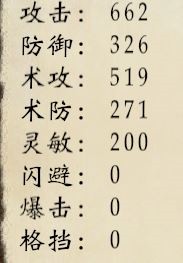 攻击: 662
防御: 326
术攻: 519
术防: 271
灵敏: 200
闪避: 0
爆击: 0
格挡: 0